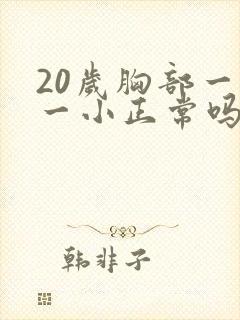 20歲胸部一
一小正常吗
韩非子